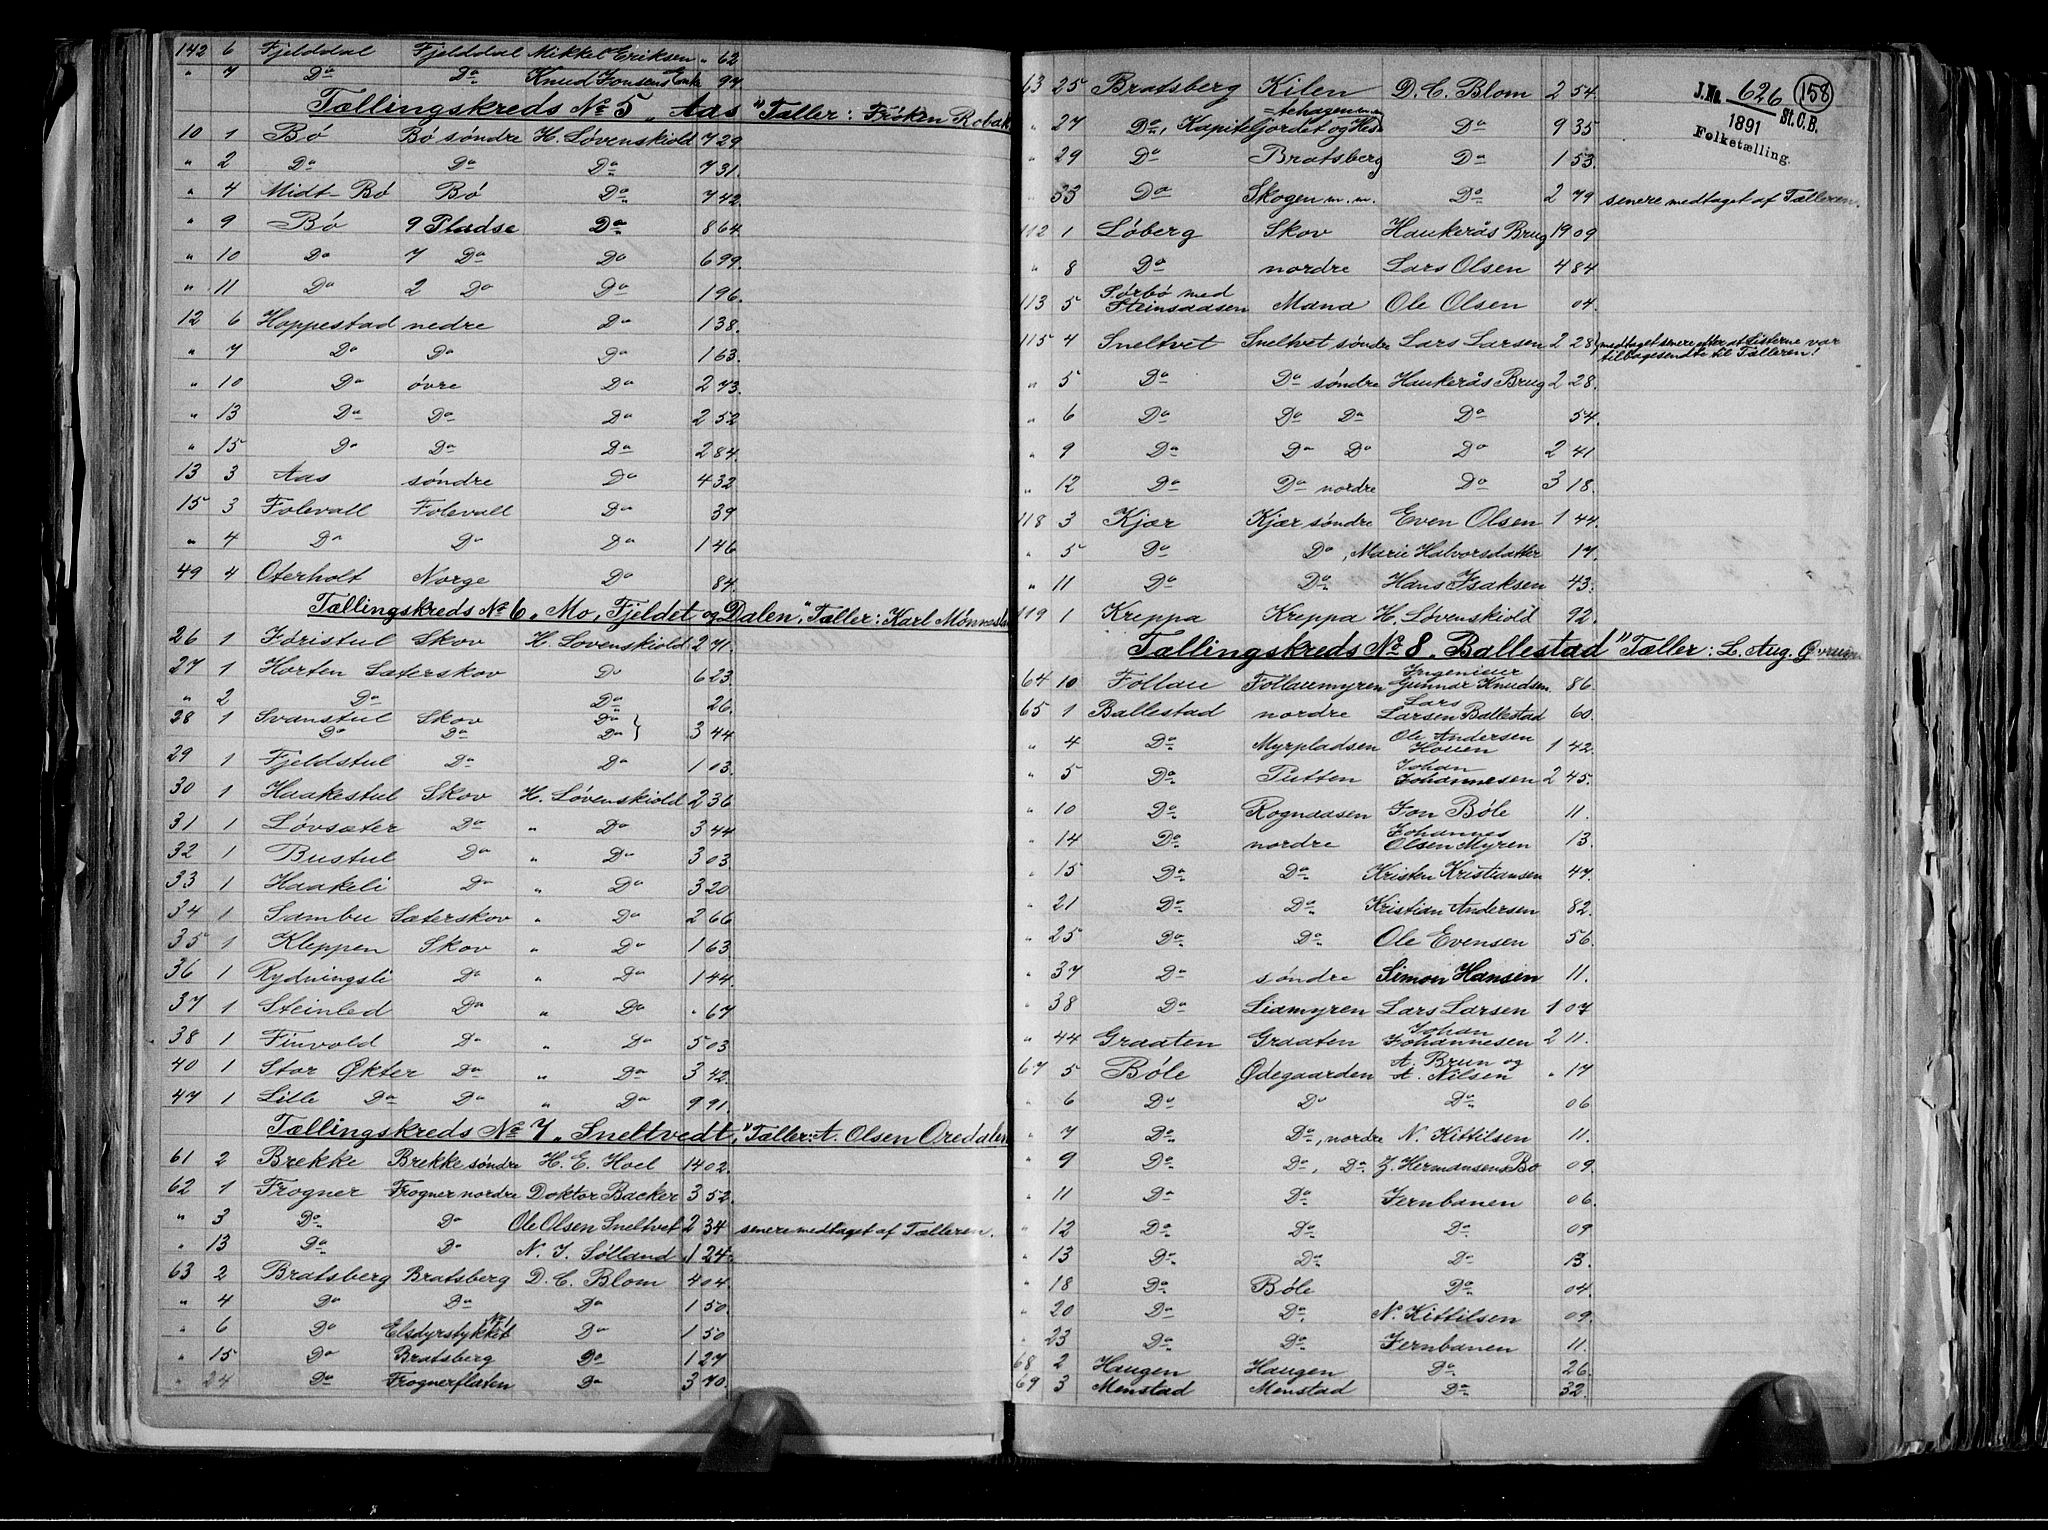 142 6 Fjelddal Fjelddal Mikkel Eriksen " 62
" 7 Do Do Knud Jonsens Enke 97
Tællingskreds No 5 „Aas" Tæller: Frøken Robak
10 1 Bö Bö söndre H. Lövenskiold 7 29
" 2 Do Do Do 7 31.
" 4 Midt-Bö Bö Do 7 42.
" 9 Bö 9 Pladse Do 8 64
" 10 Do 7 Do Do 6 99.
" 11 Do 2 Do Do 1 96.
12 6 Hoppestad nedre Do 1 38.
" 7 Do Do Do 1 63.
" 10 Do övre Do 2 73.
" 13 Do Do Do 2 52
" 15 Do Do Do 2 84.
13 3 Aas söndre Do 4 32
15 3 Folevall Folevall Do 39
" 4 Do Do Do 1 46
49 4 Oterholt Norge Do 84.
Tællingskreds No 6 „Mo, Fjeldet og Dalen," Tæller: Karl
26 1 Föristul Skov H. Lovenskiold 2 71.
27 1 Horten Sæterskov Do 6 23.
" 2 Do Do 26.
28 1 Svanstul Skov Do
Do Do Do } 3 44
29 1 Fjeldstul Do Do 1 03.
30 1 Haakestul Skov H. Lövenskiold 2 36
31 1 Lövsæter Do " Do 3 44
32 1 Bustul Do " Do 3 03.
33 1 Haakeli Do " Do 3 20
34 1 Sambu Sæterskov " Do 2 66
35 1 Kleppen Skov " Do 1 63.
36 1 Rydningsli Do " Do 1 44.
37 1 Steinled Do " Do " 67
38 1 Finvold Do " Do 5 03
40 1 Stor Økter Do " Do 3 42.
47 1 Lille Do Do " Do 9 91.
Tællingskreds No 7 „Sneltvedt," Tæller: A. Olsen Oredalen
61 2 Brekke Brekke söndre H. E. Hoel 14 02.
62 1 Frogner Frogner nordre Doktor Backer 3 52.
" 3 Do Do Ole Olsen Sneltvet 2 34 senere medtaget af Tælleren.
" 13 Do Do N. J. Sölland 1 24.
63 2 Bratsberg Bratsberg D. C. Blom 4 04.
" 4 Do Do Do 1 50.
" 6 Do Elsdyrstykket Do 1 50
" 15 Do Bratsberg Do 1 27
" 24 Do Frognerflaten Do 3 70.
J.No. 626 158
1891 St.C.B.
Folketælling.
63 25 Bratsberg Kilen D. C. Blom 2 54.
" 27 Do, Kapitelfjordet og Do 9 35
" 29 Do Bratsberg Do 1 53.
" 33 Do Skogen m.m. Do 2 79 senere medtaget af Tælleren.
112 1 Löberg Skov Haukerås Brug 19 09
" 8 Do nordre Lars Olsen 4 84
113 5 Sörbö med Steinsaasen Mana Ole Olsen 04.
115 4 Sneltvet Sneltvet söndre Lars Larsen 2 28 medtaget senere efter at Listerne var
tilbagesendte til Tælleren!
" 5 Do Do söndre Haukerås Brug 2 28.
" 6 Do Do Do Do 54.
" 9 Do Do Do Do 2 41
" 12 Do Do nordre Do 3 18.
118 3 Kjær Kjær söndre Even Olsen 1 44.
" 5 Do Do, Marie Halvorsdatter 17.
" 11 Do Do Hans Isaksen 43.
119 1 Kreppa Kreppa H. Lövenskiold 92.
Tællingskreds No 8 „Ballestad" Tæller: L. Aug.
64 10 Follau Follaumyren Ingenieur Gunnar Knudsen. 86.
65 1 Ballestad nordre Lars Larsen Ballestad 60.
" 4 Do Myrpladsen Ole Andersen Houen 1 42.
" 5 Do Putten Johan Johannesen 2 45.
" 10 Do Rognaasen Jon Böle 11.
" 14 Do nordre Johannes Olsen Myren 13.
" 15 Do Do Kristen Kristiansen 47.
" 21 Do Do Kristian Andersen 82.
" 25 Do Do Ole Evensen 56.
" 37 Do söndre Simon Hansen 11.
" 38 Do Liamyren Lars Larsen 1 07
" 44 Graaten Graaten Johan Johannesen 2 11.
67 5 Böle Ødegaarden A. Brun og A. Nilsen " 17
" 6 Do Do Do 06
" 7 Do Do, nordre N. Kittilsen 11.
" 9 Do Do, Do Z. Hermansens Bo 09.
" 11 Do Do Jernbanen 06.
" 12 Do Do Do 09
" 13 Do Do Do 13.
" 18 Do Böle Do 04.
" 20 Do Do N. Kittilsen 09.
" 23 Do Do Jernbanen 11.
68 2 Haugen Haugen Do 26
69 3 Menstad Menstad Do 32.